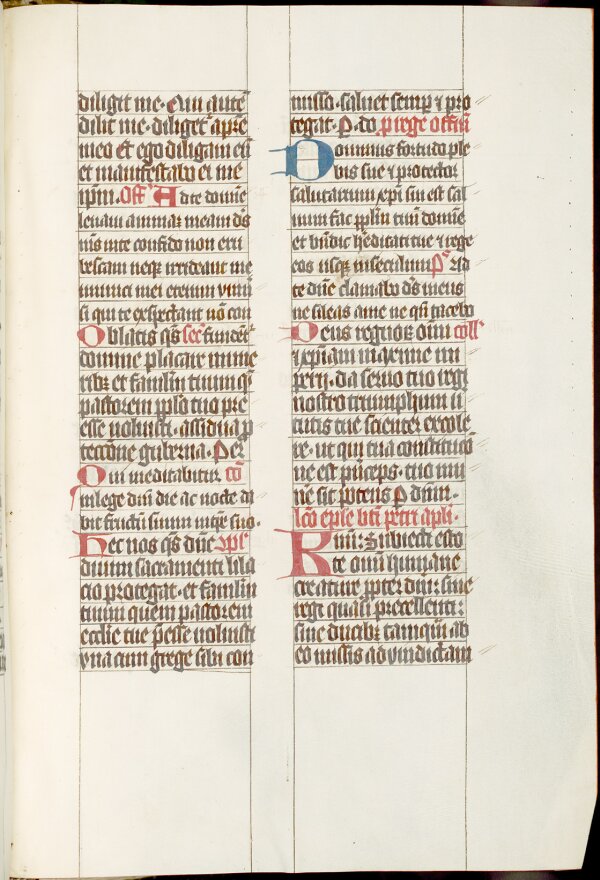 diligit me. Qui autē
dilit me. diliget᷑ a pr̄e
meo Et ego diligam eū
et manifestabo ei me
ipm̄. Off᷑ Ad te domīe
leuaui animaz meam d̄s
m̄s in te confido non eru
bescam neqꝫ irrideant me
inimici mei etenim vniū᷑
si qui te exspectant nō con
Oblatis q̄s sec᷑ fundet᷑
domine placare mune
ribꝫ et famlm̄ tuum q̄
pastorem pplo tuo pre
esse voluisti. assidua ꝓ
tectione guberna. Per
Qui meditabitur cō
in lege dn̄i die ac nocte da
bit fructū suum in tpe suo.
Hec nos q̄s dn̄e ɔple
diuini sacramenti libā
cio protegat. et famlm̄
tuum quem pastorem
ecclie tue ꝑesse voluisti
vna cum grege sibi con
misso. saluet semꝑ ⁊ pro
tegat. P. do. p rege offm̄
Dominus fortitudo ple
bis sue ⁊ protector
salutarium xp̄i sui est sal
uum fac pplm̄ tuū domīe
et bn̄dic heditati tue ⁊ rege
eos usqꝫ in seculum Ps Ad
te dn̄e clamabo d̄s meus
ne sileas a me ne qn̄ tacebo
Deus regnoꝝ oīm coll᷑
⁊ xp̄iani maxime im
perii. da seruo tuo regi
nostro triumphum ū
tutis tue scienter excole
re. ut qui tua constitutio
ne est princeps. tuo mu
ne sit potens P dn̄m.
lc̄o eple bti petri apli.
Kmi: Subiecti esto
te om̄i humane
creature ꝓpter dm̄: siue
regi quasi precellenti:
siue ducibꝫ tamqm̄ ab
eo missis ad vindictam